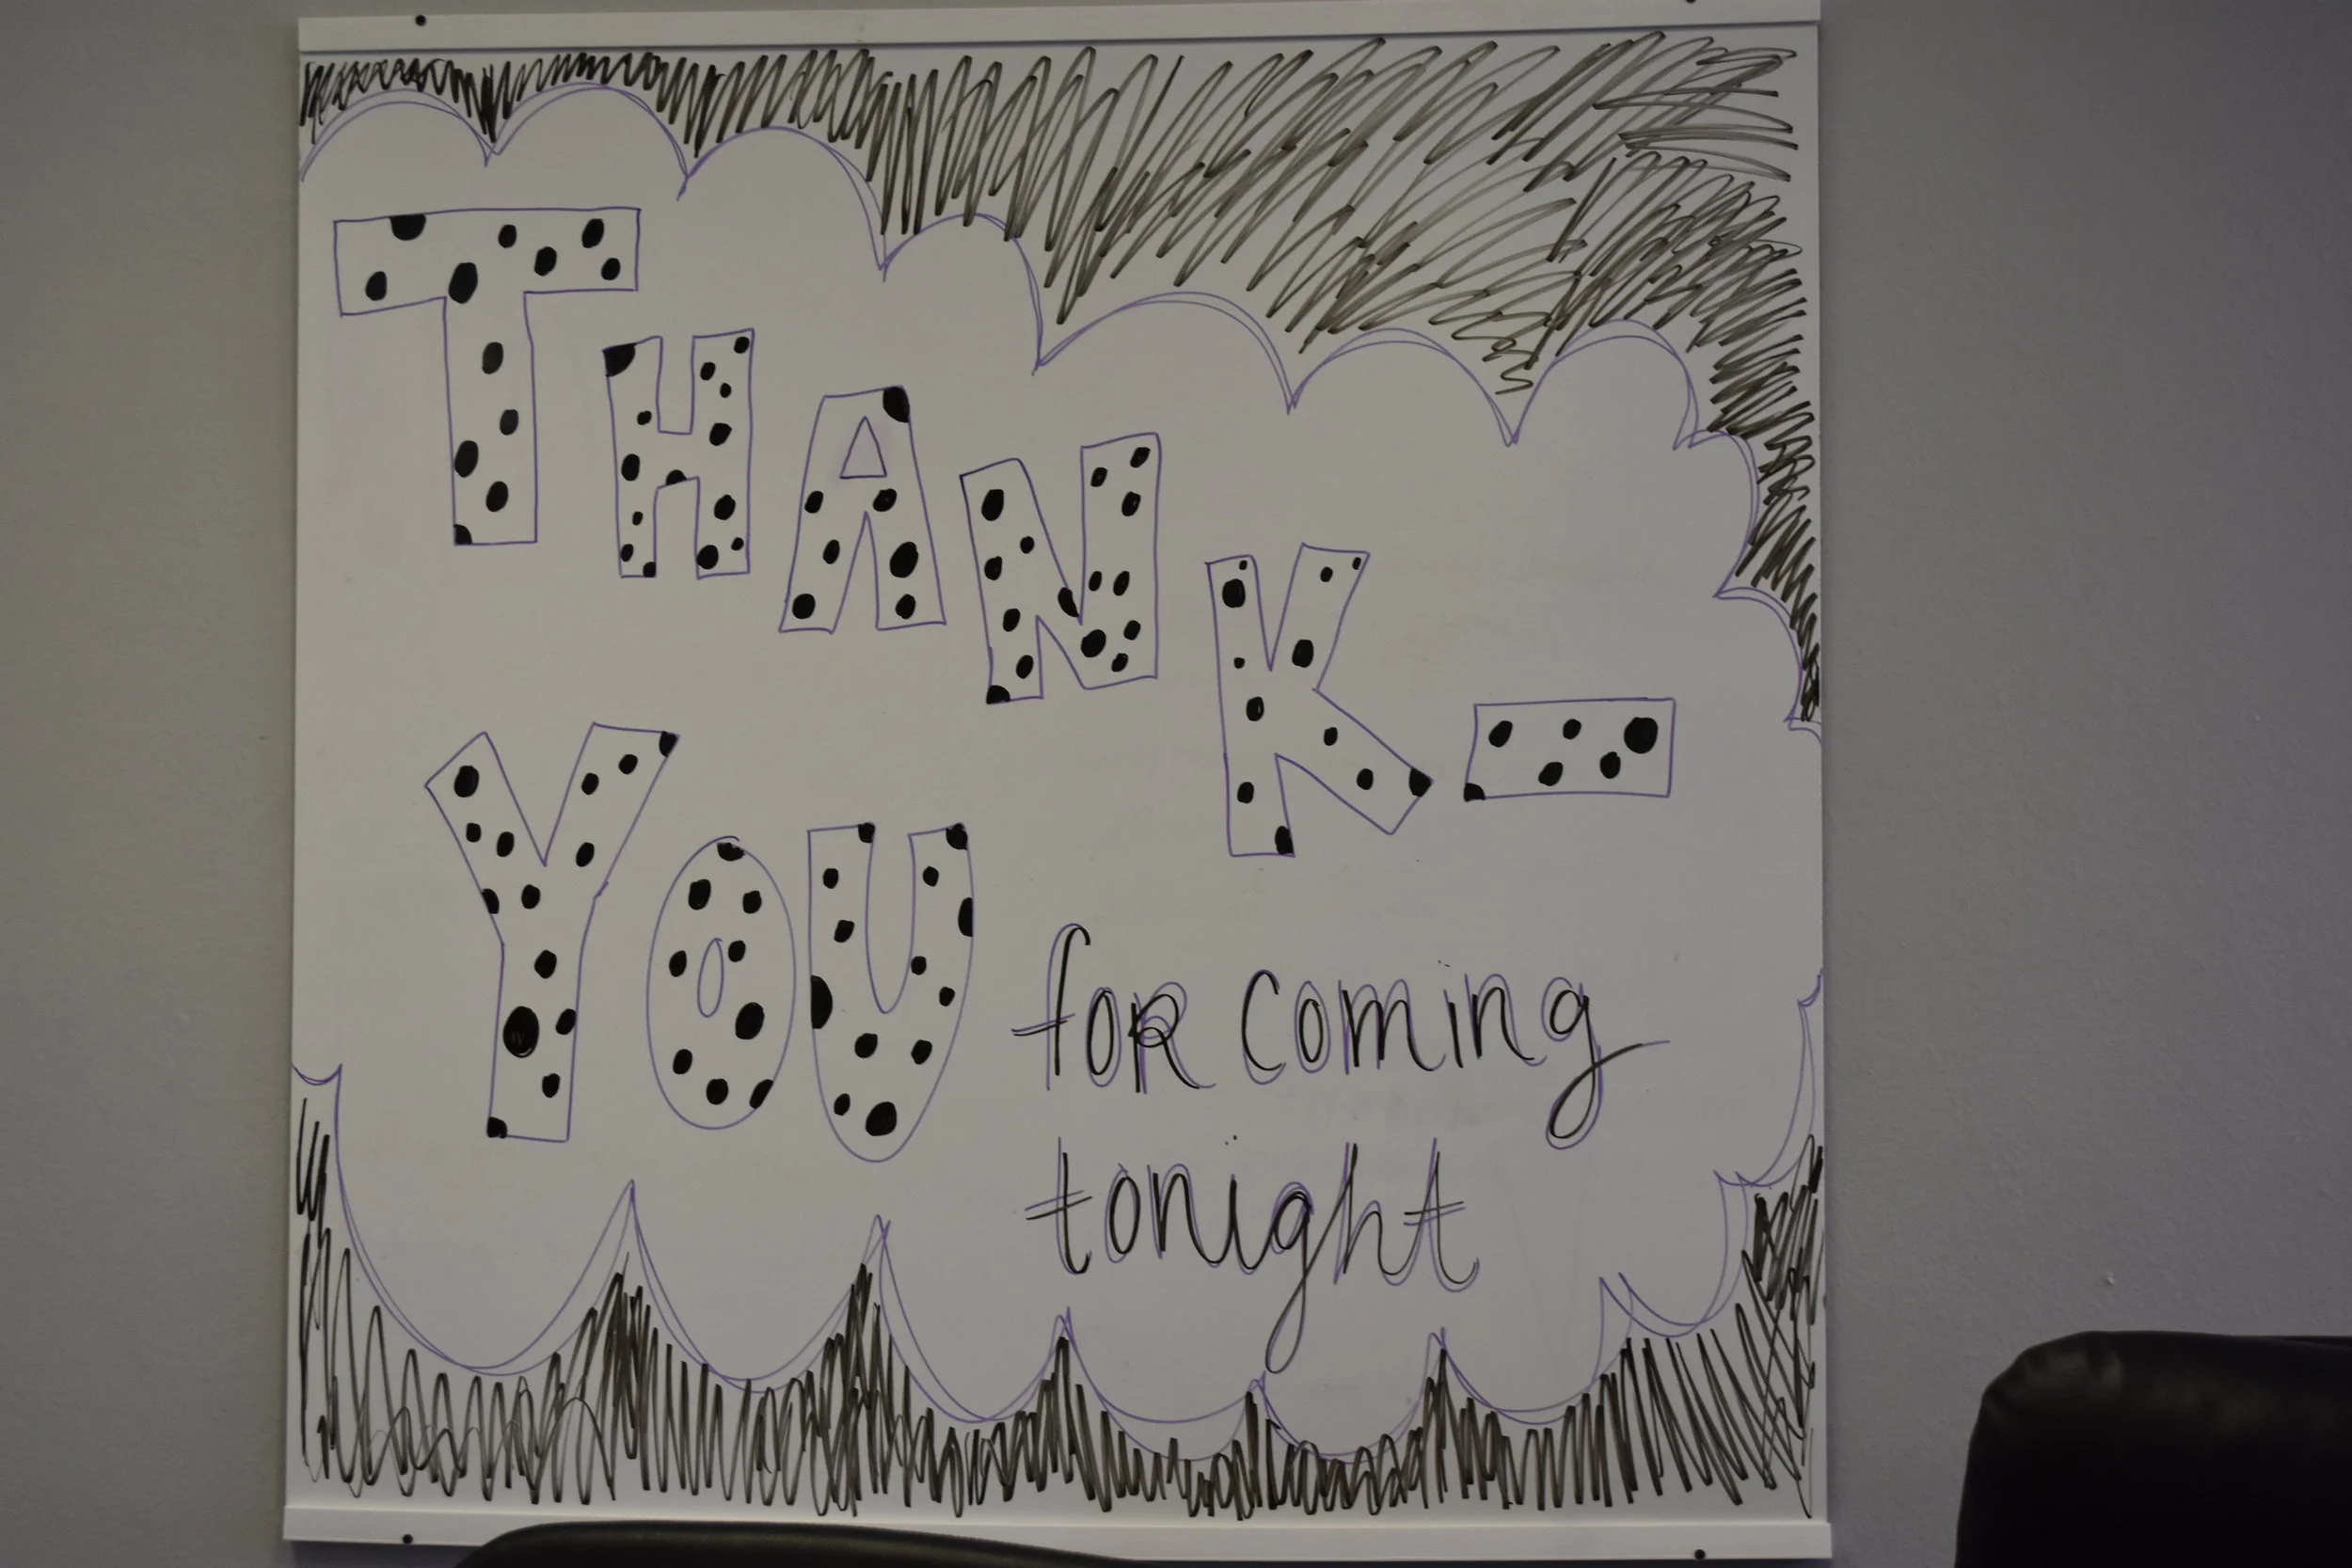 THANK-
YOU
foR coming
tonight